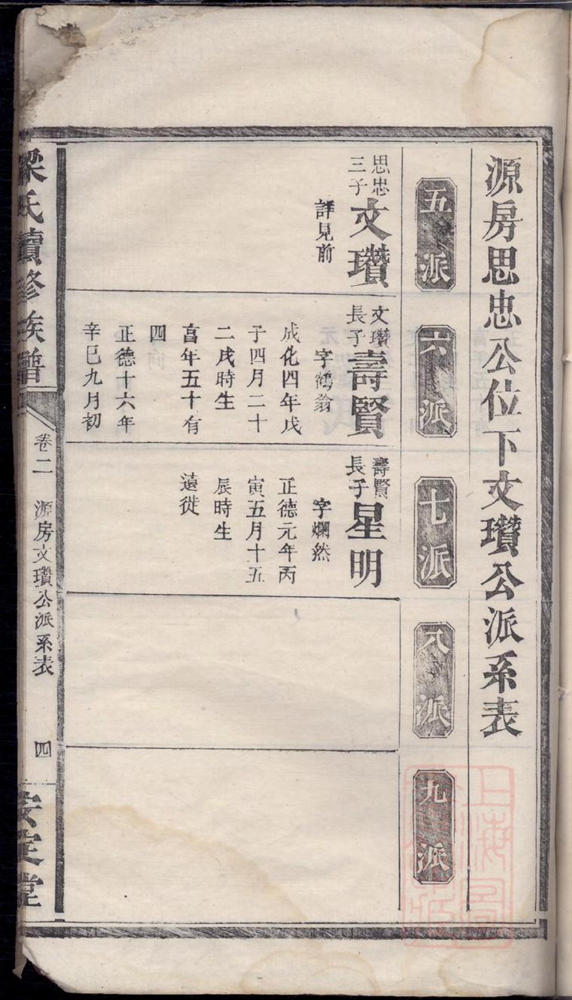 源房思忠公位下文瓚公派系表
五派
六派
七派
八派
九派
思忠
三子
文瓚
詳見前
文瓚
長子
壽賢
字鶴翁
成化四年戊
子四月二十
二戌時生
享年五十有
四
正德十六年
辛巳九月初
壽賢
長子
星明
字爛然
正德元年丙
寅五月十五
辰時生
遠徙
梁氏續修族譜
卷二
源房文瓚公派系表
四
安定堂